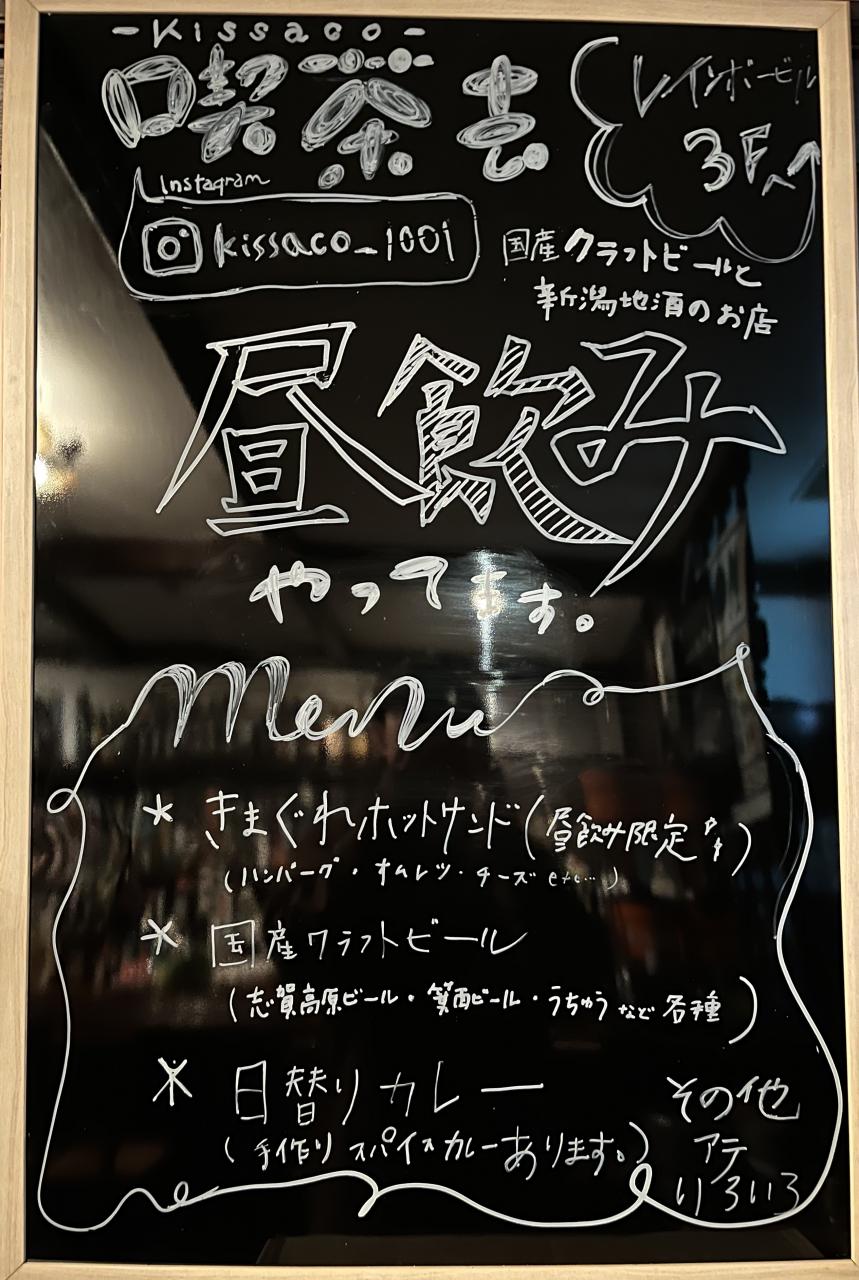 -Kissaco-
喫茶去
レインボービル
3Fへ
Instagram
kissaco_1001
国産クラフトビールと
新潟地酒のお店
昼飲み
やってます。
Menu
* きまぐれホットサンド(昼飲み限定)
(ハンバーグ・オムレツ・チーズ etc…)
* 国産クラフトビール
(志賀高原ビール・箕面ビール・うちゅう など 各種)
* 日替りカレー
(手作りスパイスカレーあります。)
その他
アテ
いろいろ